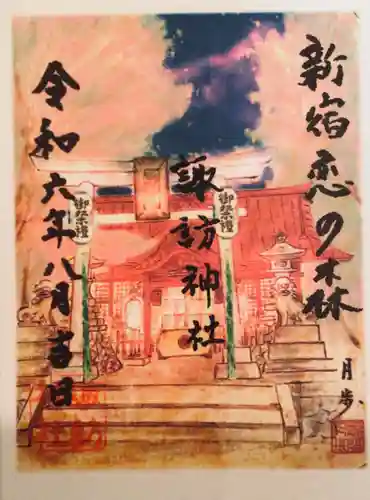 新宿恋の森
諏訪神社
令和六年八月吉日
月歩
御祭禮
御祭禮